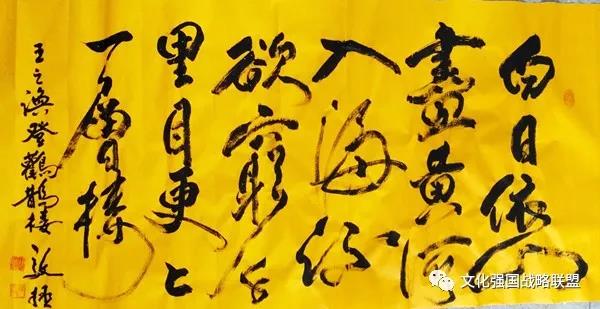 白日依山
盡黄河
入海流
欲窮千
里目更上
一層樓
王之渙登鸛鵲楼
文化强国战略联盟